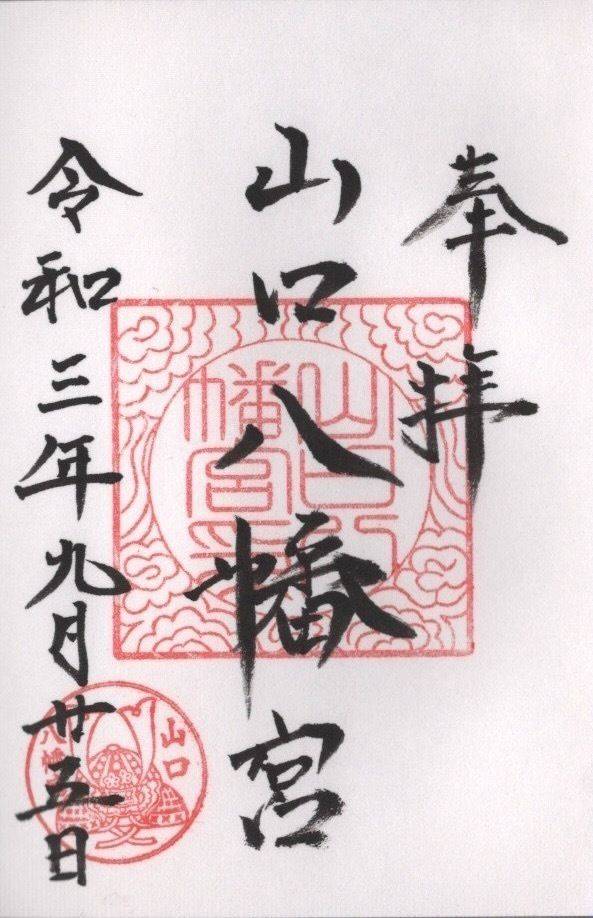 奉拝
山口八幡宮
令和三年九月廿五日
山口八
幡宮印
山口
八幡